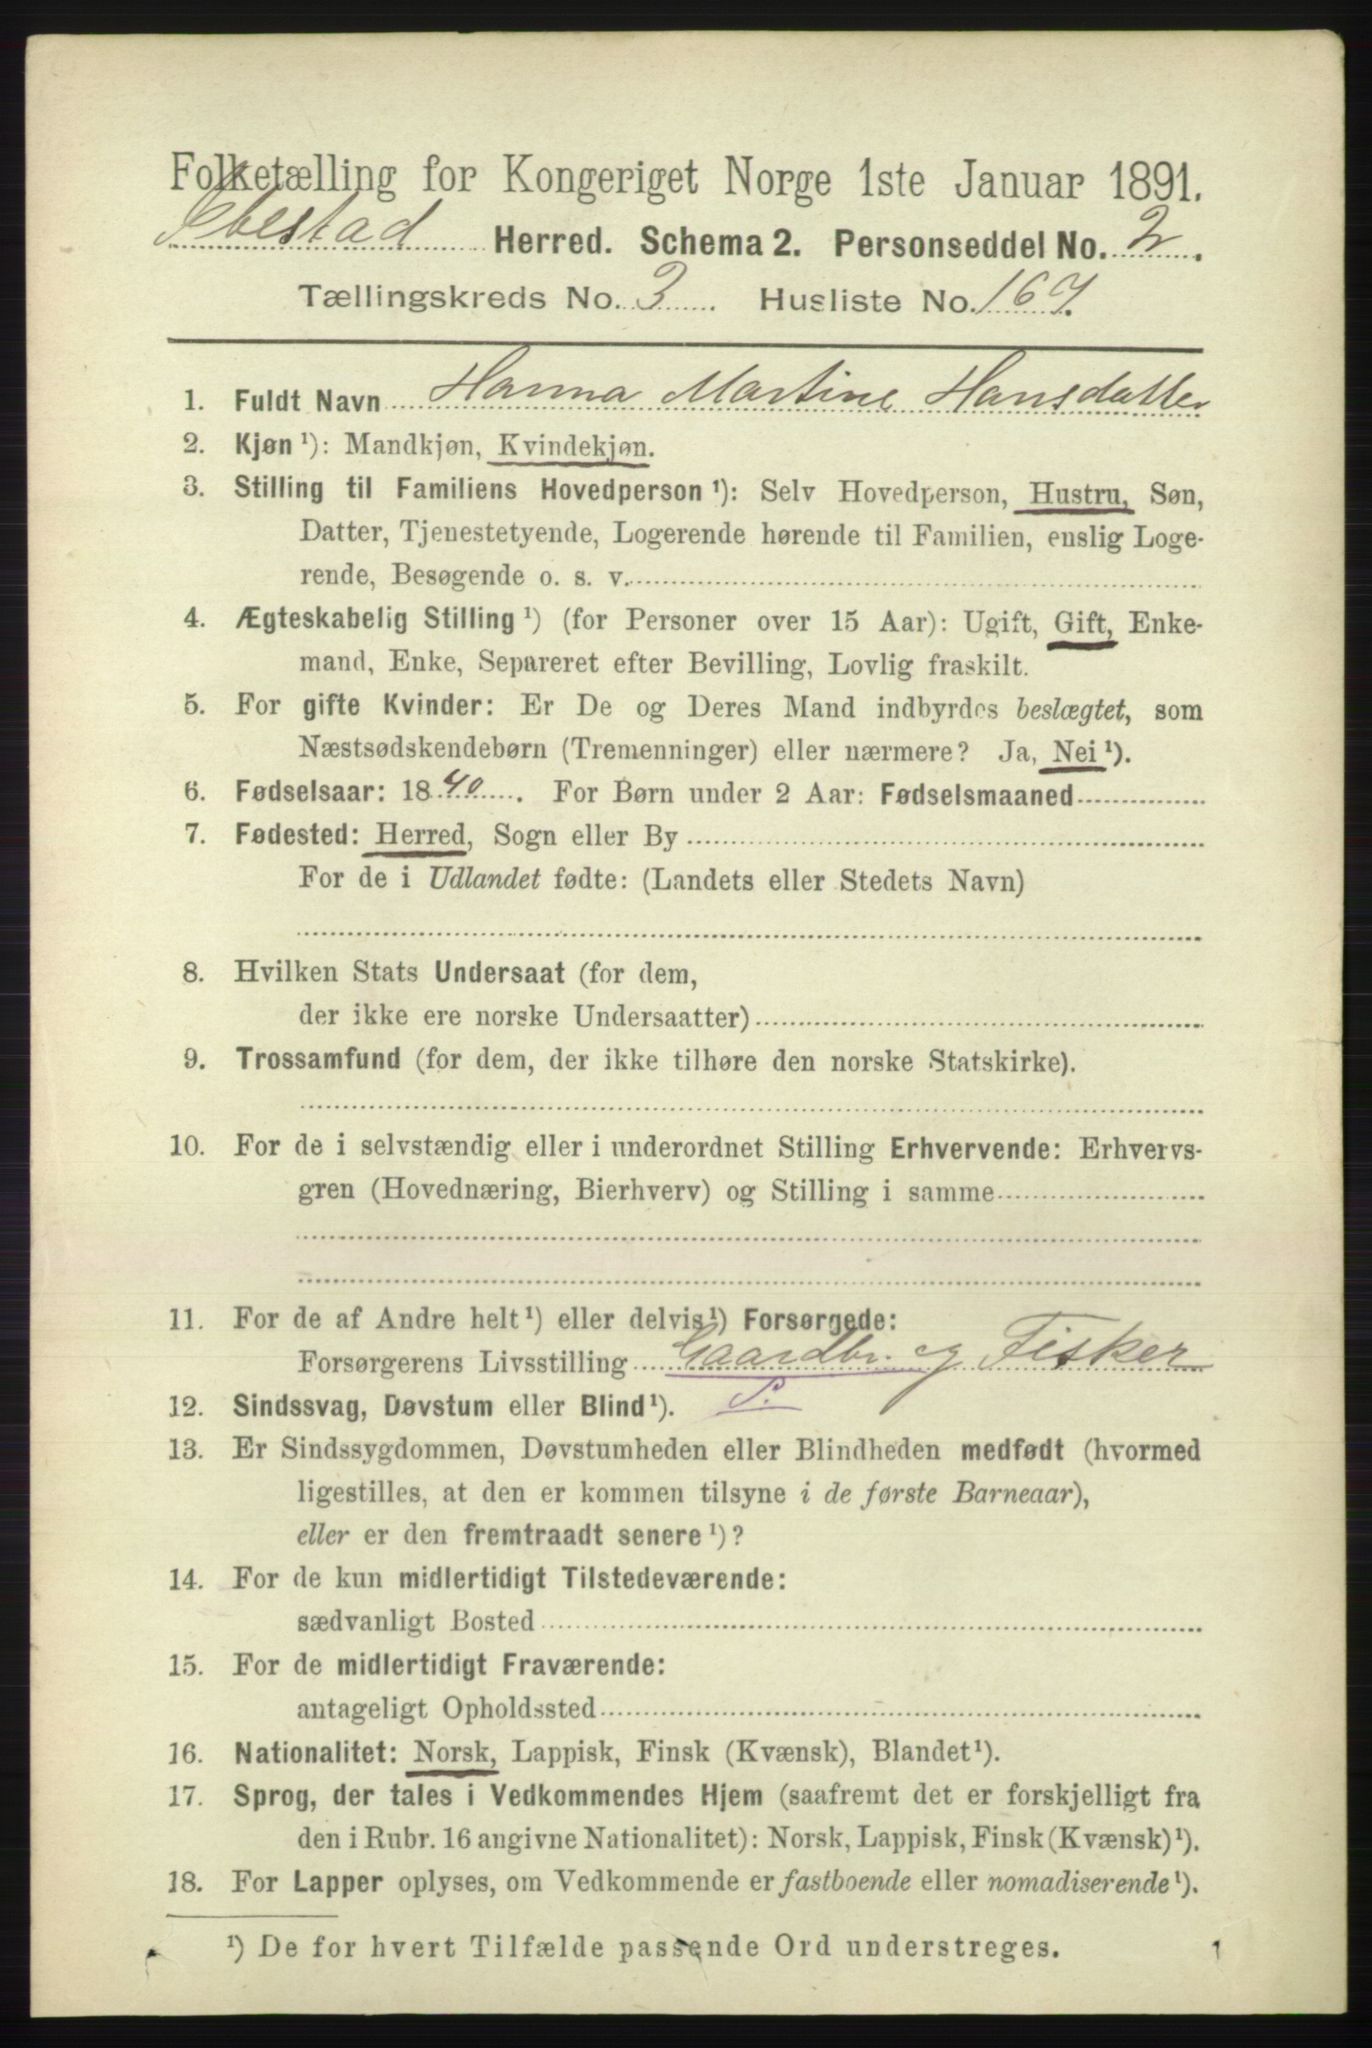 Folketælling for Kongeriget Norge 1ste Januar 1891.
Ibestad Herred. Schema 2. Personseddel No. 2.
Tællingskreds No. 3. Husliste No. 167.
1. Fuldt Navn Hanna Martine Hansdatter
2. Kjøn ¹): Mandkjøn, Kvindekjøn.
3. Stilling til Familiens Hovedperson ¹): Selv Hovedperson, Hustru, Søn,
Datter, Tjenestetyende, Logerende hørende til Familien, enslig Loge-
rende, Besøgende o. s. v.
4. Ægteskabelig Stilling ¹) (for Personer over 15 Aar): Ugift, Gift, Enke-
mand, Enke, Separeret efter Bevilling, Lovlig fraskilt.
5. For gifte Kvinder: Er De og Deres Mand indbyrdes beslægtet, som
Næstsødskendebørn (Tremenninger) eller nærmere? Ja, Nei ¹).
6. Fødselsaar: 1840. For Børn under 2 Aar: Fødselsmaaned
7. Fødested: Herred, Sogn eller By
For de i Udlandet fødte: (Landets eller Stedets Navn)
8. Hvilken Stats Undersaat (for dem,
der ikke ere norske Undersaatter)
9. Trossamfund (for dem, der ikke tilhøre den norske Statskirke).
10. For de i selvstændig eller i underordnet Stilling Erhvervende: Erhvervs-
gren (Hovednæring, Bierhverv) og Stilling i samme
11. For de af Andre helt ¹) eller delvis ¹) Forsørgede:
Forsørgerens Livsstilling Gaardbr. og Fisker
12. Sindssvag, Døvstum eller Blind ¹). S.
13. Er Sindssygdommen, Døvstumheden eller Blindheden medfødt (hvormed
ligestilles, at den er kommen tilsyne i de første Barneaar),
eller er den fremtraadt senere ¹)?
14. For de kun midlertidigt Tilstedeværende:
sædvanligt Bosted
15. For de midlertidigt Fraværende:
antageligt Opholdssted
16. Nationalitet: Norsk, Lappisk, Finsk (Kvænsk), Blandet ¹).
17. Sprog, der tales i Vedkommendes Hjem (saafremt det er forskjelligt fra
den i Rubr. 16 angivne Nationalitet): Norsk, Lappisk, Finsk (Kvænsk) ¹).
18. For Lapper oplyses, om Vedkommende er fastboende eller nomadiserende ¹).
¹) De for hvert Tilfælde passende Ord understreges.